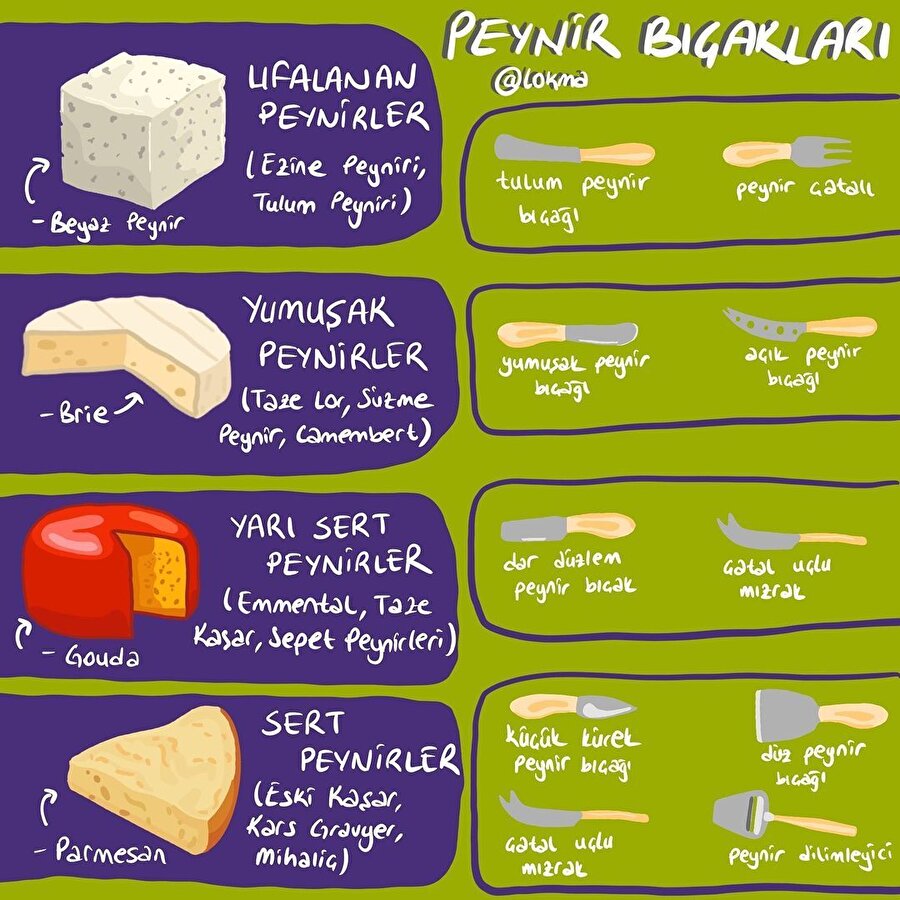 PEYNİR BIÇAKLARI
@lokma
UFALANAN
PEYNİRLER
(Ezine Peyniri,
Tulum Peyniri)
- Beyaz Peynir
tulum peynir
bıçağı
peynir çatalı
YUMUŞAK
PEYNİRLER
(Taze Lor, Süzme
Peynir, Camembert)
- Brie
yumuşak peynir
bıçağı
açık peynir
bıçağı
YARI SERT
PEYNİRLER
(Emmental, Taze
Kaşar, Sepet Peynirleri)
- Gouda
dar düzlem
peynir bıçak
çatal uçlu
mızrak
SERT
PEYNİRLER
(Eski Kaşar,
Kars Gravyer,
Mihaliç)
- Parmesan
küçük kürek
peynir bıçağı
düz peynir
bıçağı
çatal uçlu
mızrak
peynir dilimleyici